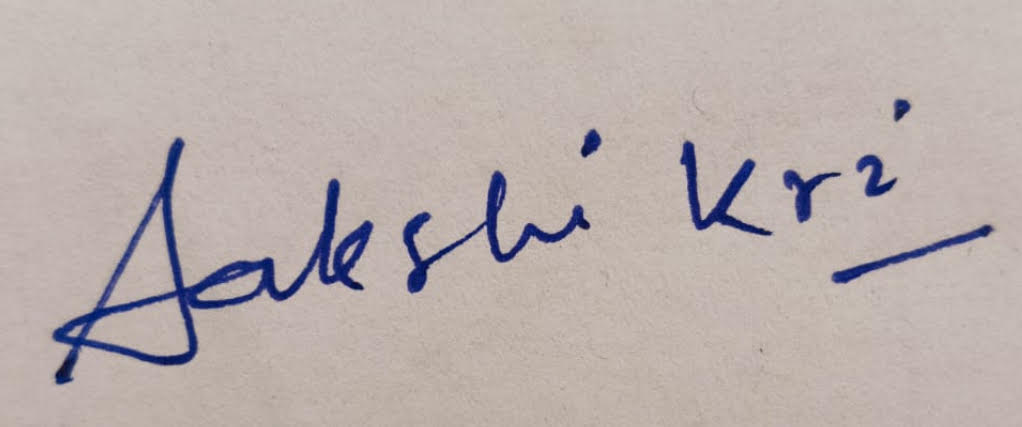 Sakshi Kri